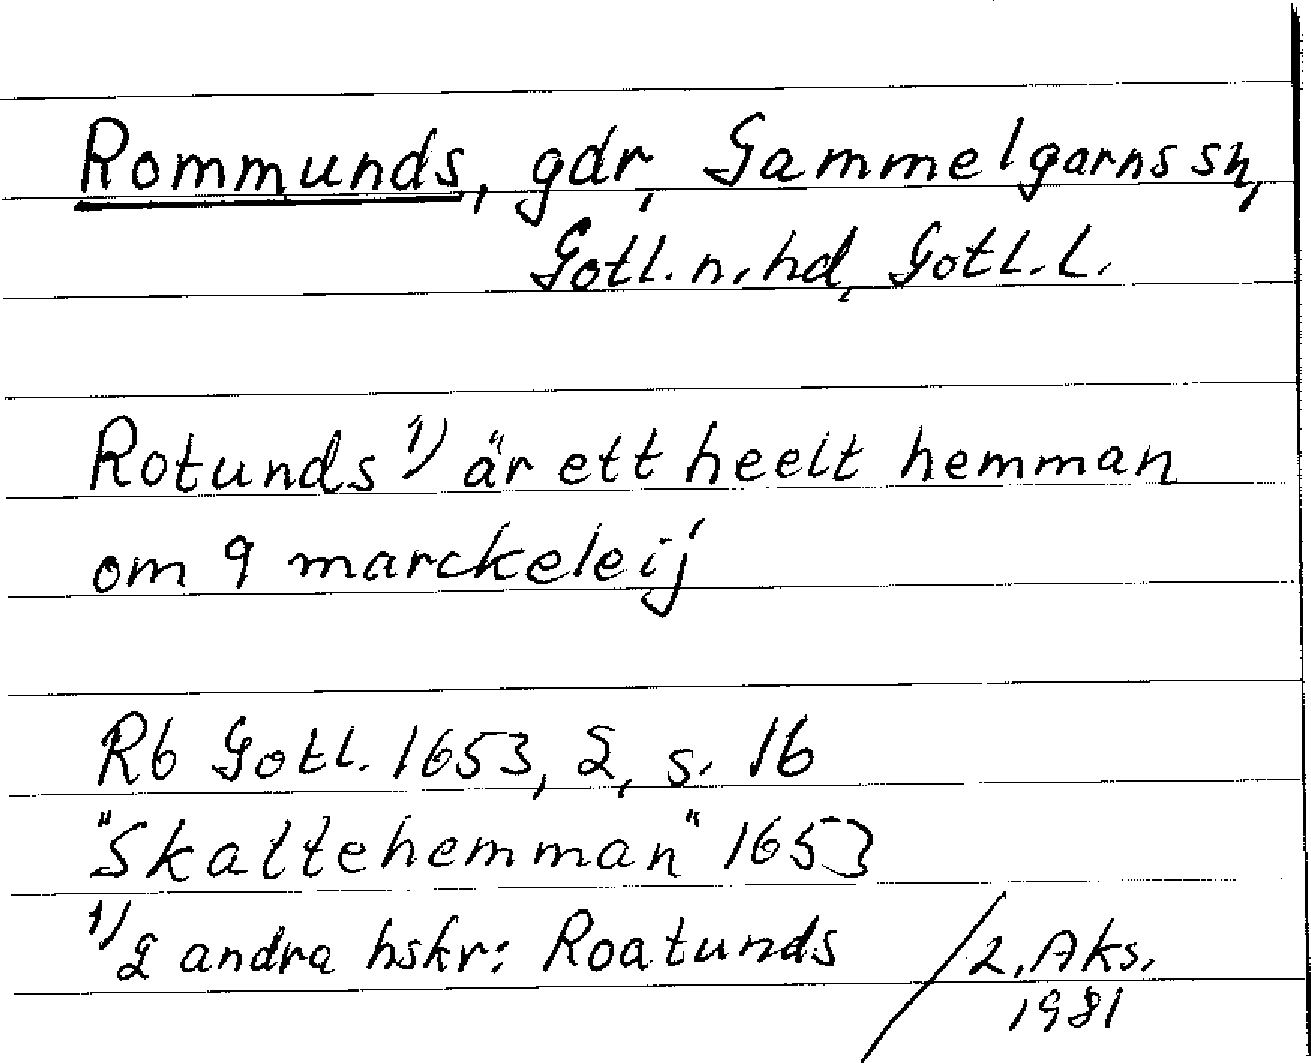 Rommunds, gdr, Gammelgarns sn,
Gotl. n. hd, Gotl. l.
Rotunds 1) är ett heelt hemman
om 9 marckeleij
Rb Gotl. 1653, 2, s. 16
"Skattehemman" 1653
1) 2 andra hskr: Roatunds
2. Aks.
1981